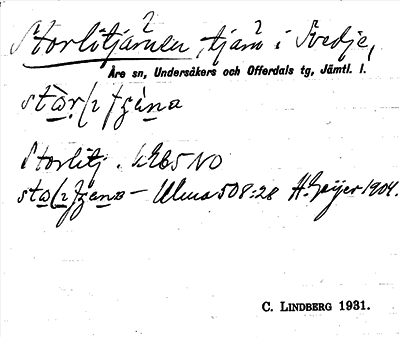 Storlitjärnen, tjärn i Svedje,
Åre sn, Undersåkers och Offerdals tg, Jämtl. l.
Storlitj. 65 NO
Ulma 508:28 H. Geijer 1904.
C. LINDBERG 1931.